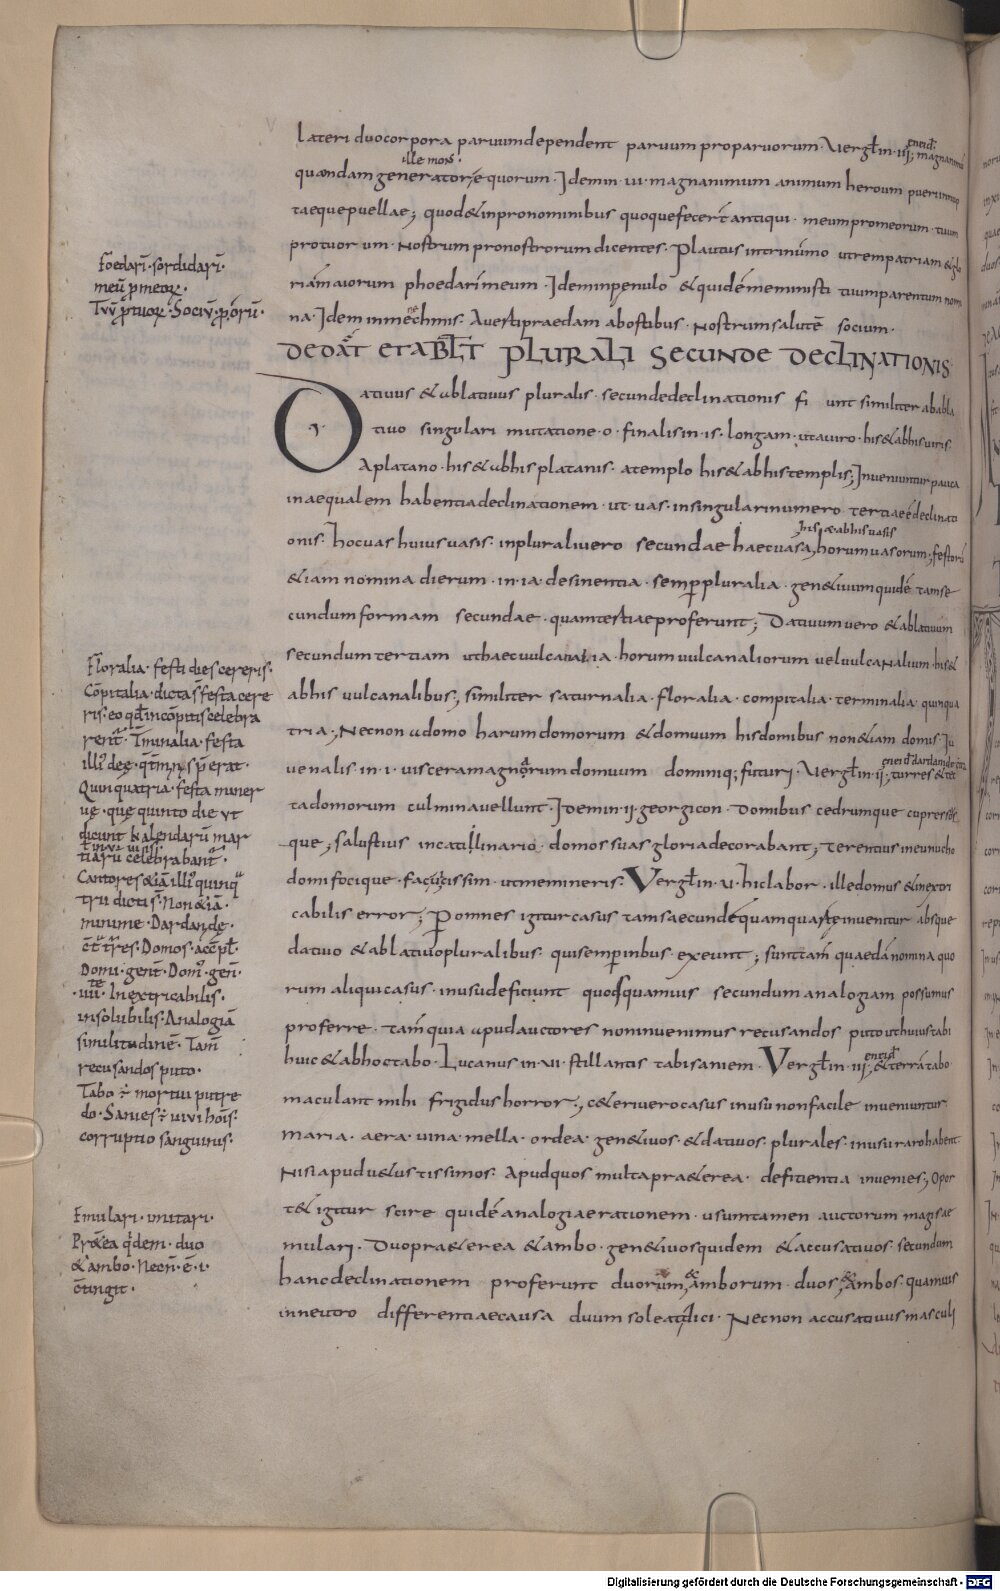 lateri duo corpora parvum dependent parvum pro parvorum. Vergł in. iii; magnanimū
eneid.
quandam generatoris ē quorum. Idem in. vi. magnanimum animum heroum pueri innup
ille mons.
taeque puellae; quod & in pronominibus quoque fecerł antiqui. meum pro meorum. tuum
pro tuorum. Nostrum pro nostrorum dicentes. Plautus in trinūmo ut rem patriam & glo
riām aiorum phoedarī meum. Idem in penulo & quidē meministi tuum parentum nom
na. Idem in mechmis. Avesti praedam ab ostibus. Nostrum salutē socium.
ne
DE DAT ET ABLT PLURALI SECUNDE DECLINATIONIS
Dativus & ablativus pluralis. secunde declinationis fi unt similiter ab abla
tivo singulari mutatione. o. finalis in. is. longam. ut a viro. his & ab his viris.
A platano. his & ab his platanis. a templo his & ab his templis; Inveniuntur pauca
inaequalem habentia declinationem. ut vas. in singulari numero tertiae ē declinati
onis. hoc vas huius vasis. in plurali vero secundae haec vasa, horum vasorum; festorū
his & ab his vasis
& iam nomina dierum. in. ia. desinentia. semp pluralia. gen&ivum quidē tam se
cundum formam secundae. quam tertiae proferunt; Dativum vero & ablativum
secundum tertiam ut haec vulcanalia. horum vulcanaliorum vel vulcanalium. his &
ab his vulcanalibus; similiter saturnalia. floralia. compitalia. terminalia. quinqua
tria; Necnon a domo harum domorum & domuum his domibus non & iam domis. Iu
venalis in. i. viscera magnorum domuum dominiq; futuri. Vergł in. ii; turres & tec
eneid dardanide contra
ta domorum culmina vellunt. Idem in. ii. georgicon. Domibus cedrumque cupressos
que; salustius in catillinario. domos suas gloria decorabant; Terentius in eunucho
domi focique. fac vicissim. ut memineris. Vergł in. vi. hic labor. ille domus & inextri
cabilis error; P omnes igitur casus tam secundē quam quartae invenitur absque
dativo & ablativo pluralibus. qui semp in bus exeunt; sunt tam quaedā nomina quo
rum aliqui casus. in usu deficiunt quos quamvis secundum analogiam possumus
proferre. tam quia apud auctores non invenimus recusandos puto ut huius tabi
huic & ab hoc tabo. Lucanus in. vi. stillantis tabi saniem. Vergł in. iii; & terrā tabo
eneid
maculant mihi frigidus horror; c&eri vero casus in usu non facile inveniuntur.
maria. aera. vina. mella. ordea. gen&ivos. & dativos. plurales. in usu raro habent
Nisi apud v&ustissimos. Apud quos multa pra&erea. deficientia invenies; Opor
t& igitur scire quidē analogiae rationem. usum tamen auctorum magis ae
mulari. Duo pra&erea & ambo. gen&ivos quidem & accusativos. secundum
hanc declinationem proferunt duorum, & amborum. duos, & ambos. quamvis
in neutro differentiae causa duum soleat dici. Necnon accusativus masculi
Foedarī. sordidarī.
meū p meoꝝ.
Tuū p tuoꝝ. Sociū p orū.
Floralia. festi dies cereris.
Cōpitalia. dictas festa cere
ris. eo qđ in cōpitis celebra
rent. Tminalia. festa
Quinquatria. festa miner
vę. que quinto die ut
dicunt kalendarū mar
tiarū celebrabant.
Cantores & iā illi quinq
trū dictis. Non & iā.
minime. Dardanidę.
Domi. genit. Dom. gen.
Inextricabilis.
insolubilis. Analogiā
similitudinē. Tam
recusandos puto.
Tabo ÷ mortui putre
do. Sanies ÷ vivi hois.
corruptio sanguinis.
Emulari. imitari.
Pr&ea qdem. duo
& ambo. Necn. ē. i.
ctingit.
Digitalisierung gefördert durch die Deutsche Forschungsgemeinschaft - DFG